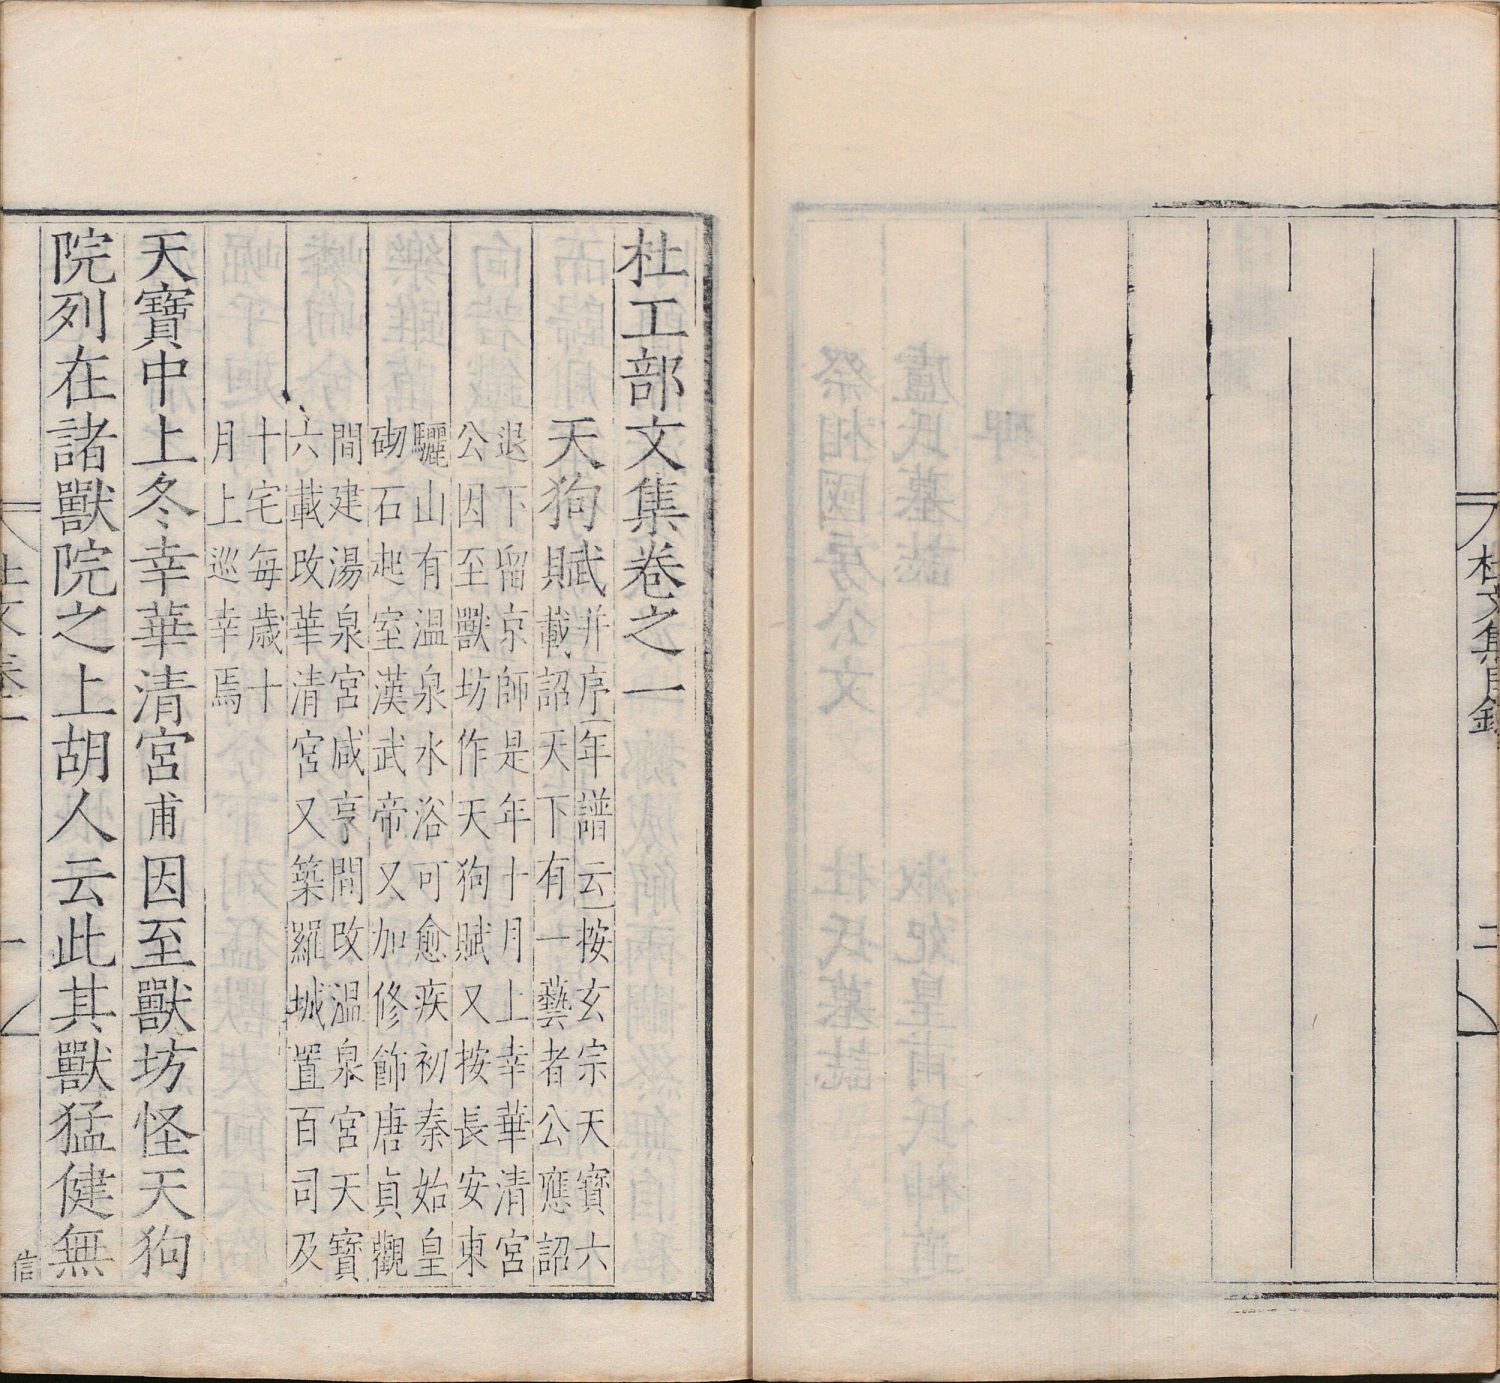 杜文集目錄
二
杜工部文集卷之一
天狗賦
并序年譜云按玄宗天寶六
載詔天下有一藝者公應詔
退下留京師是年十月上幸華清宮
公因至獸坊作天狗賦又按長安東
驪山有温泉水浴可愈疾初秦始皇
砌石起室漢武帝又加修飾唐貞觀
間建湯泉宮咸亨間改温泉宮天寶
六載改華清宮又築羅城置百司及
十宅每歲十
月上巡幸焉
天寶中上冬幸華清宮甫因至獸坊怪天狗
院列在諸獸院之上胡人云此其獸猛健無
信
杜文卷一
一